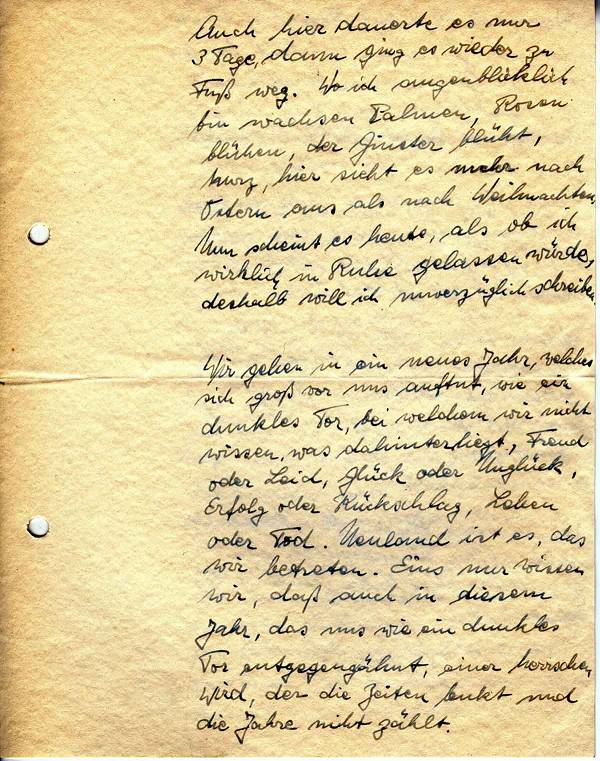 Auch hier dauerte es nur
3 Tage, dann ging es wieder zu
Fuß weg. Wo ich augenblicklich
bin wachsen Palmen, Rosen
blühen, der Ginster blüht,
kurz, hier sieht es mehr nach
Ostern aus als nach Weihnachten.
Nun scheint es heute, als ob ich
wirklich in Ruhe gelassen würde,
deshalb will ich unverzüglich schreiben.
Wir gehen in ein neues Jahr, welches
sich groß vor uns auftut, wie ein
dunkles Tor, bei welchem wir nicht
wissen, was dahinterliegt, Freud
oder Leid, Glück oder Unglück,
Erfolg oder Rückschlag, Leben
oder Tod. Neuland ist es, das
wir betreten. Eins nur wissen
wir, daß auch in diesem
Jahr, das uns wie ein dunkles
Tor entgegengähnt, einer herrschen
wird, der die Zeiten lenkt und
die Jahre nicht zählt.